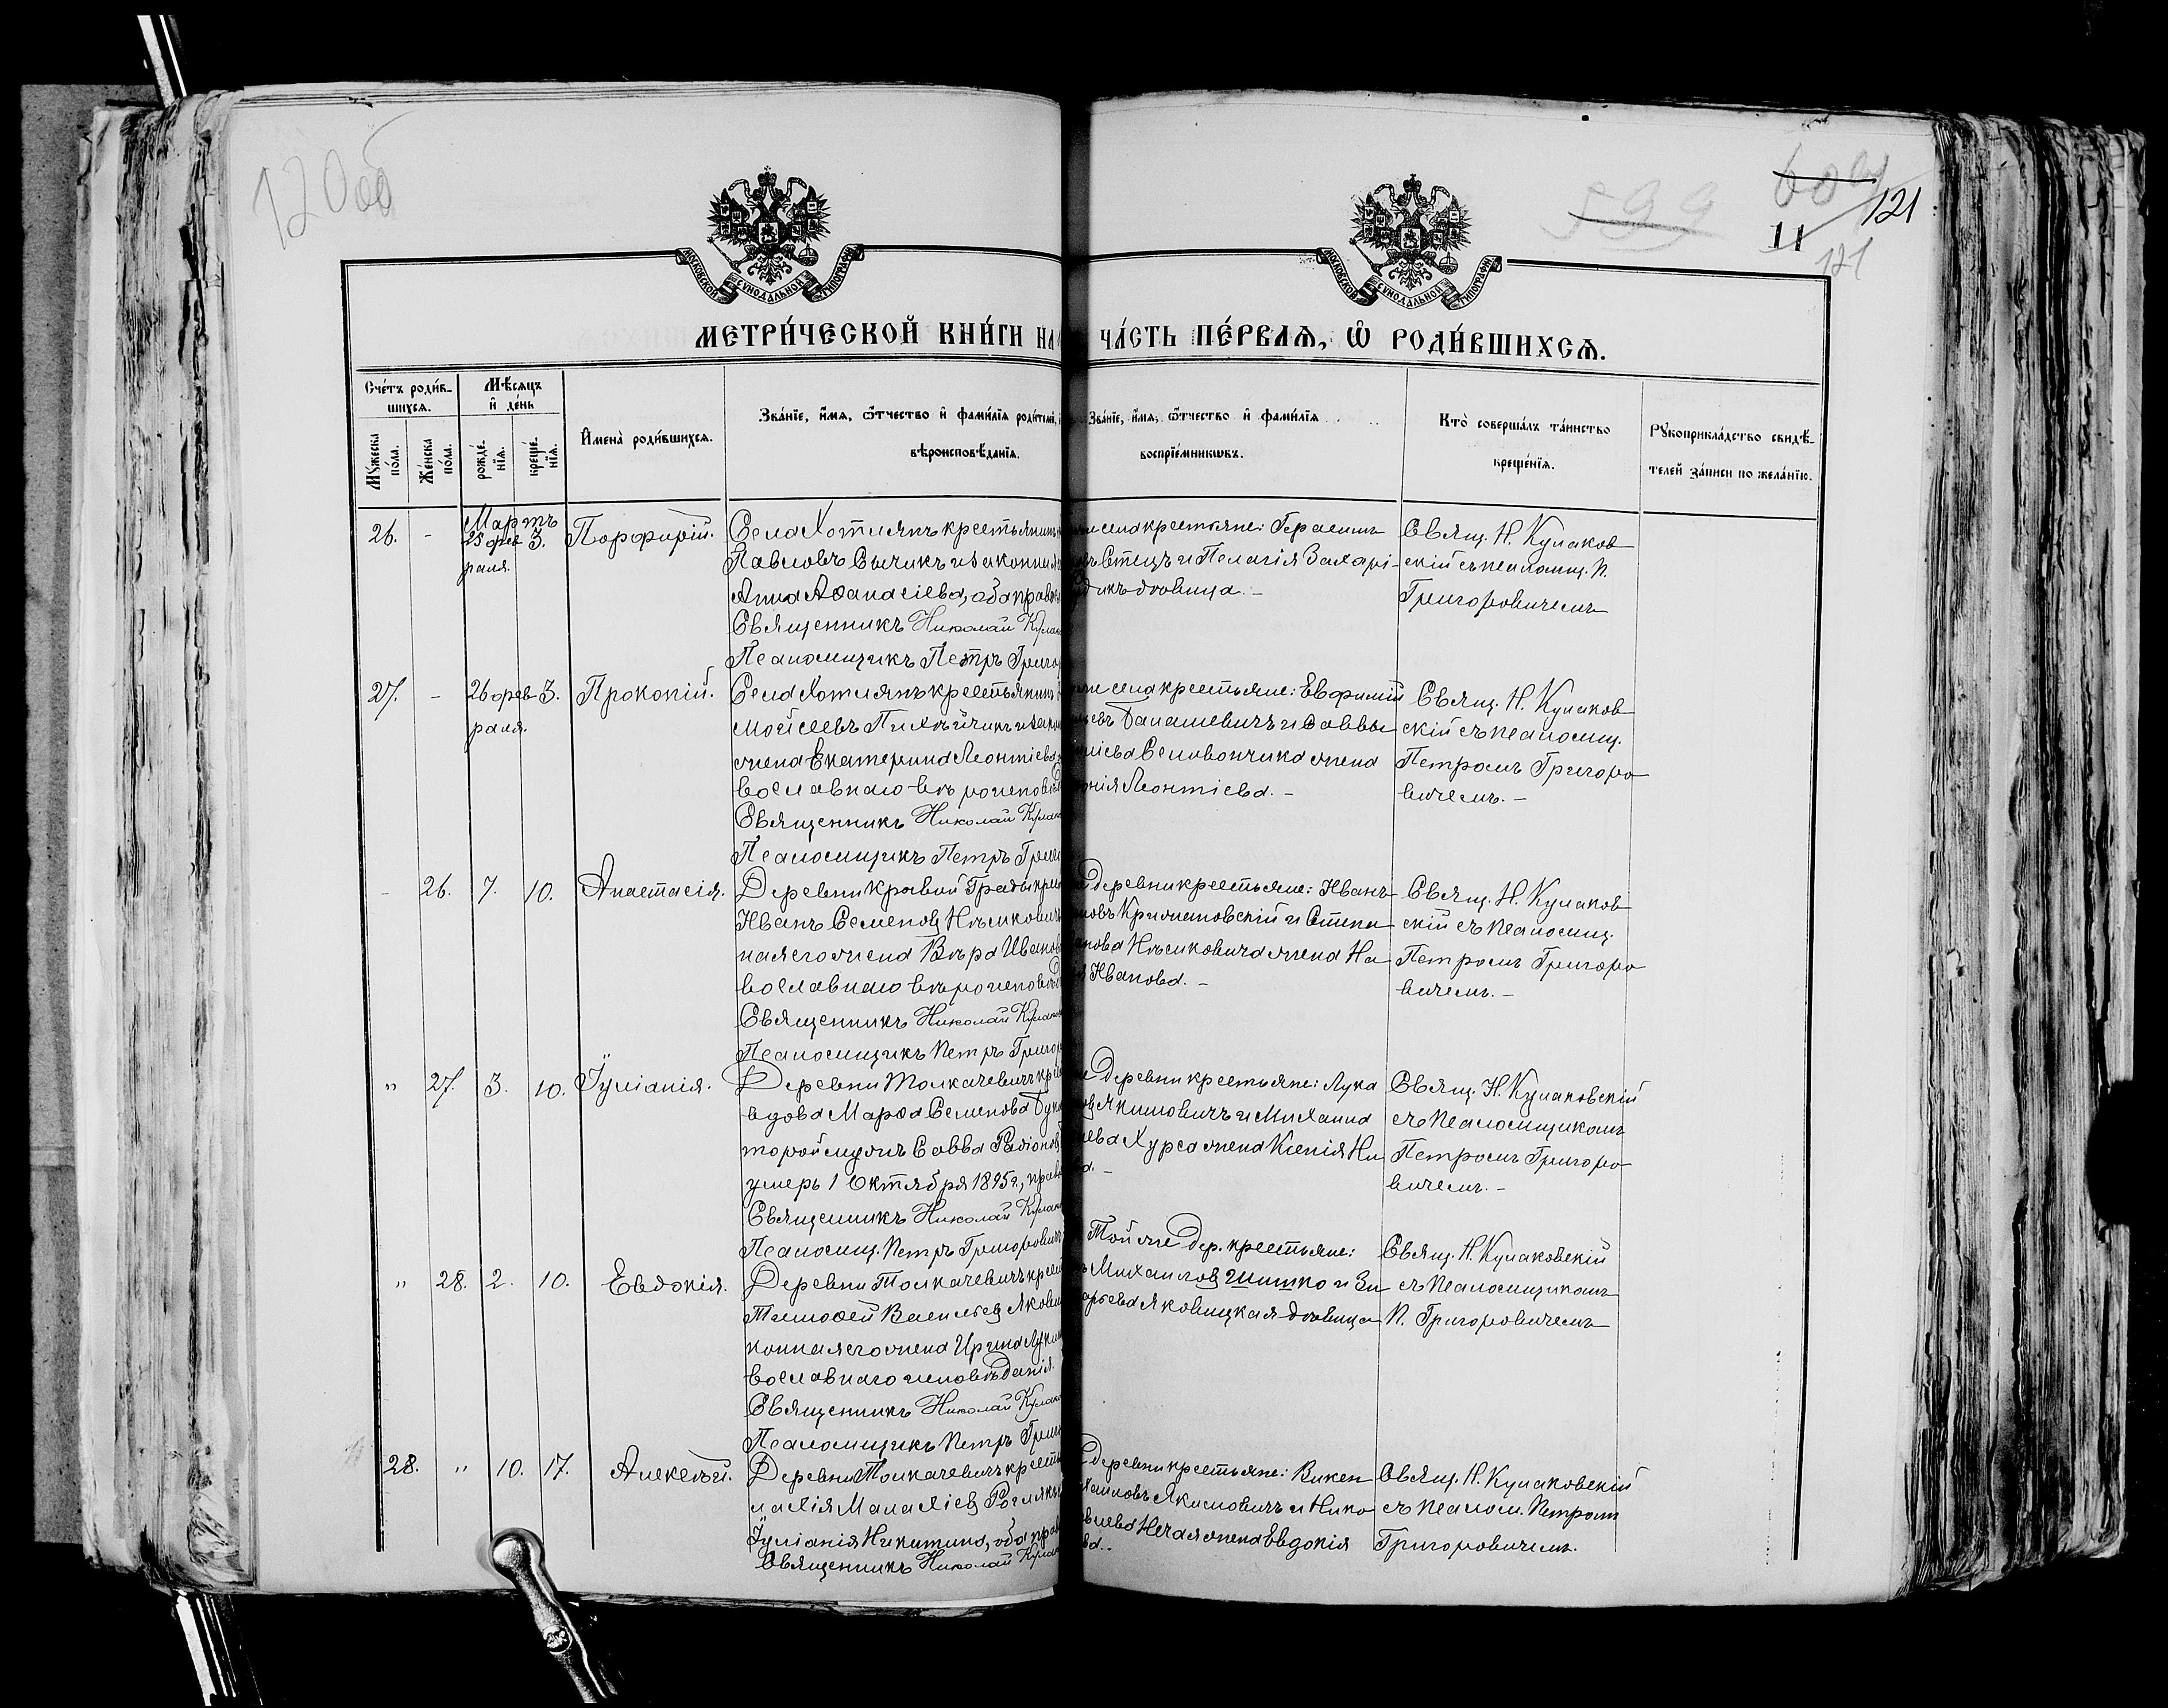 120об
599
60
11
121
121
МОСКОВСКОЙ СѴНОДАЛЬНОЙ ТИПОГРАФІИ
МОСКОВСКОЙ СѴНОДАЛЬНОЙ ТИПОГРАФІИ
МЕТРИ́ЧЕСКОЙ КНИ́ГИ НА
ЧА́СТЬ ПЕ́РВАѦ, Ѿ РОДИ́ВШИХСѦ.
Сче́тъ роди́в-
шихсѧ.
Мѣ́сѧцъ
и҆ де́нь
Мꙋ́жеска
по́ла.
Же́нска
по́ла.
рожде́-
нїѧ.
креще́-
нїѧ.
И҆мена̀ роди́вшихсѧ.
Зва́нїе, и҆́мѧ, ѻ҆́тчество и҆ фами́лїѧ роди́телей,
вѣроисповѣ́данїѧ.
Зва́нїе, и҆́мѧ, ѻ҆́тчество и҆ фами́лїѧ
воспрїе́мникѡвъ.
Кто̀ соверша́лъ та́инство
креще́нїѧ.
Рꙋкоприкла́дство свидѣ́-
телей за́писи по жела́нїю.
Мартъ
26. - 25 фев 3. Порфирій.
раля.
Села Хотилянъ крестьянинъ
Павловъ Сычикъ и законная
Анна Аѳанасіева, оба право
Священникъ Николай Кулак
Псаломщикъ Петръ Григор
села крестьяне: Герасимъ
въ Стецъ и Пелагія Захарі-
дикъ дѣвица. -
Свящ. Н. Кулаков
скій съ псаломщ. П.
Григоровичемъ
27. - 26 фев 3. Прокопій.
раля.
Села Хотилянъ крестьянинъ
Моисеевъ Пилѣйчикъ и закон
жена Екатерина Леонтіева,
вославнаго вѣроисповѣд
Священникъ Николай Кулак
Псаломщикъ Петръ Григо
села крестьяне: Евфимій
евъ Балашевичъ и Саввы
жена
онія Леонтіева. -
Свящ. Н. Кулаков
скій съ псаломщ.
Петромъ Григоро
вичемъ. -
- 26. 7. 10. Анастасія.
Деревни Кривой Гряды крес
Иванъ Семеновъ Нѣсковичъ
ная его жена Вѣра Иванов
вославнаго вѣроисповѣд
Священникъ Николай Кулак
Псаломщикъ Петръ Григор
деревни крестьяне: Иванъ
новъ Кришталовскій и Степа
нова Нѣсковича жена На
Иванова. -
Свящ. Н. Кулаков
скій съ псаломщ.
Петромъ Григоро
вичемъ. -
" 27. 3. 10. Іуліанія.
Деревни Толкачевичъ кре
вдова Марѳа Семенова Бук
торой мужъ Савва Радіонов
умеръ 1 Октября 1895 г., право
Священникъ Николай Кулак
Псаломщ. Петръ Григорович
деревни крестьяне: Лука
Якимовичъ и Михаила
ева Хурса жена Ксенія Ни
а. -
Свящ. Н. Кулаковскій
съ псаломщикомъ
Петромъ Григоро
вичемъ. -
" 28. 2. 10. Евдокія.
Деревни Толкачевичъ крест
Тимоѳей Васильевъ Якови
конная его жена Ирина Луки
вославнаго исповѣданія.
Священникъ Николай Кулак
Псаломщикъ Петръ Григ
Той же дер. крестьяне:
Михаиловъ Шишко и Зи
арьева Яковицкая дѣвица
Свящ. Н. Кулаковскій
съ псаломщикомъ
П. Григоровичемъ
28. " 10. 17. Алексѣй.
Деревни Толкачевичъ кресть
Іуліанія Никитина, оба прав
Священникъ Николай Кулак
деревни крестьяне: Викен
Якимовичъ и Нико
жена Евдокія
ва. -
Свящ. Н. Кулаковскій
съ псалом. Петромъ
Григоровичемъ.